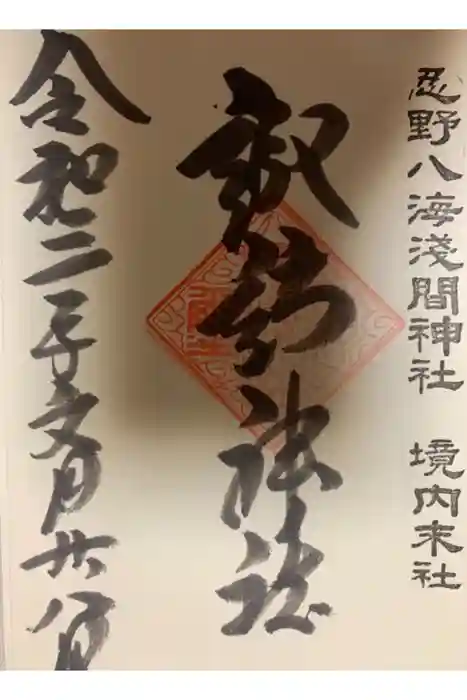 忍野八海淺間神社　境内末社
神社
令和二年文月廿八日